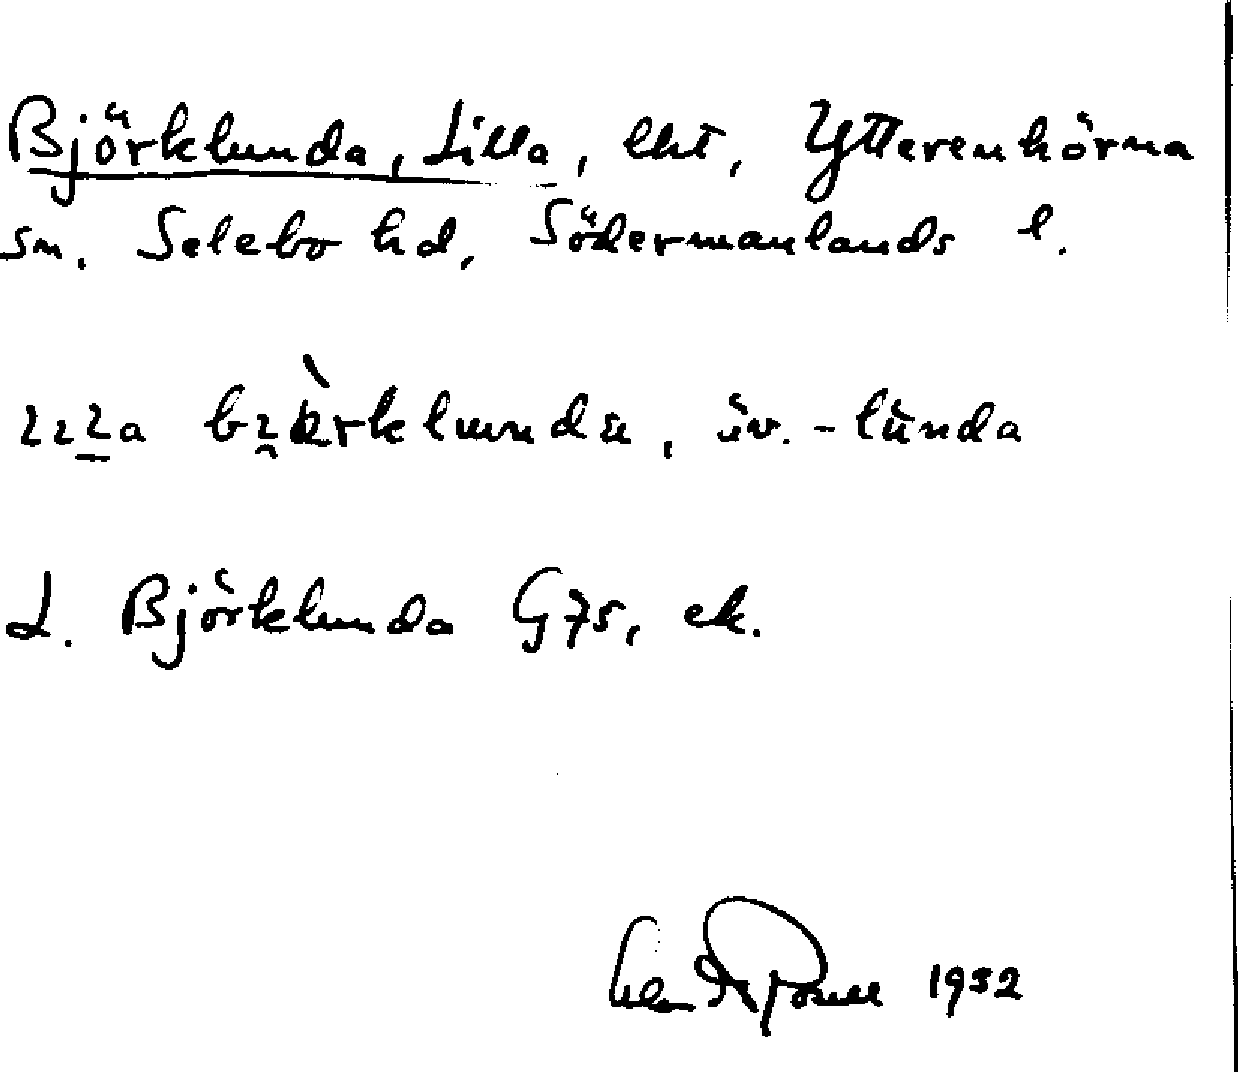 Björklunda, Lilla, lht, Ytterenhörna
sn. Selebo hd, Södermanlands l.
äv. - lùnda
L. Björklunda G75, ek.
1932